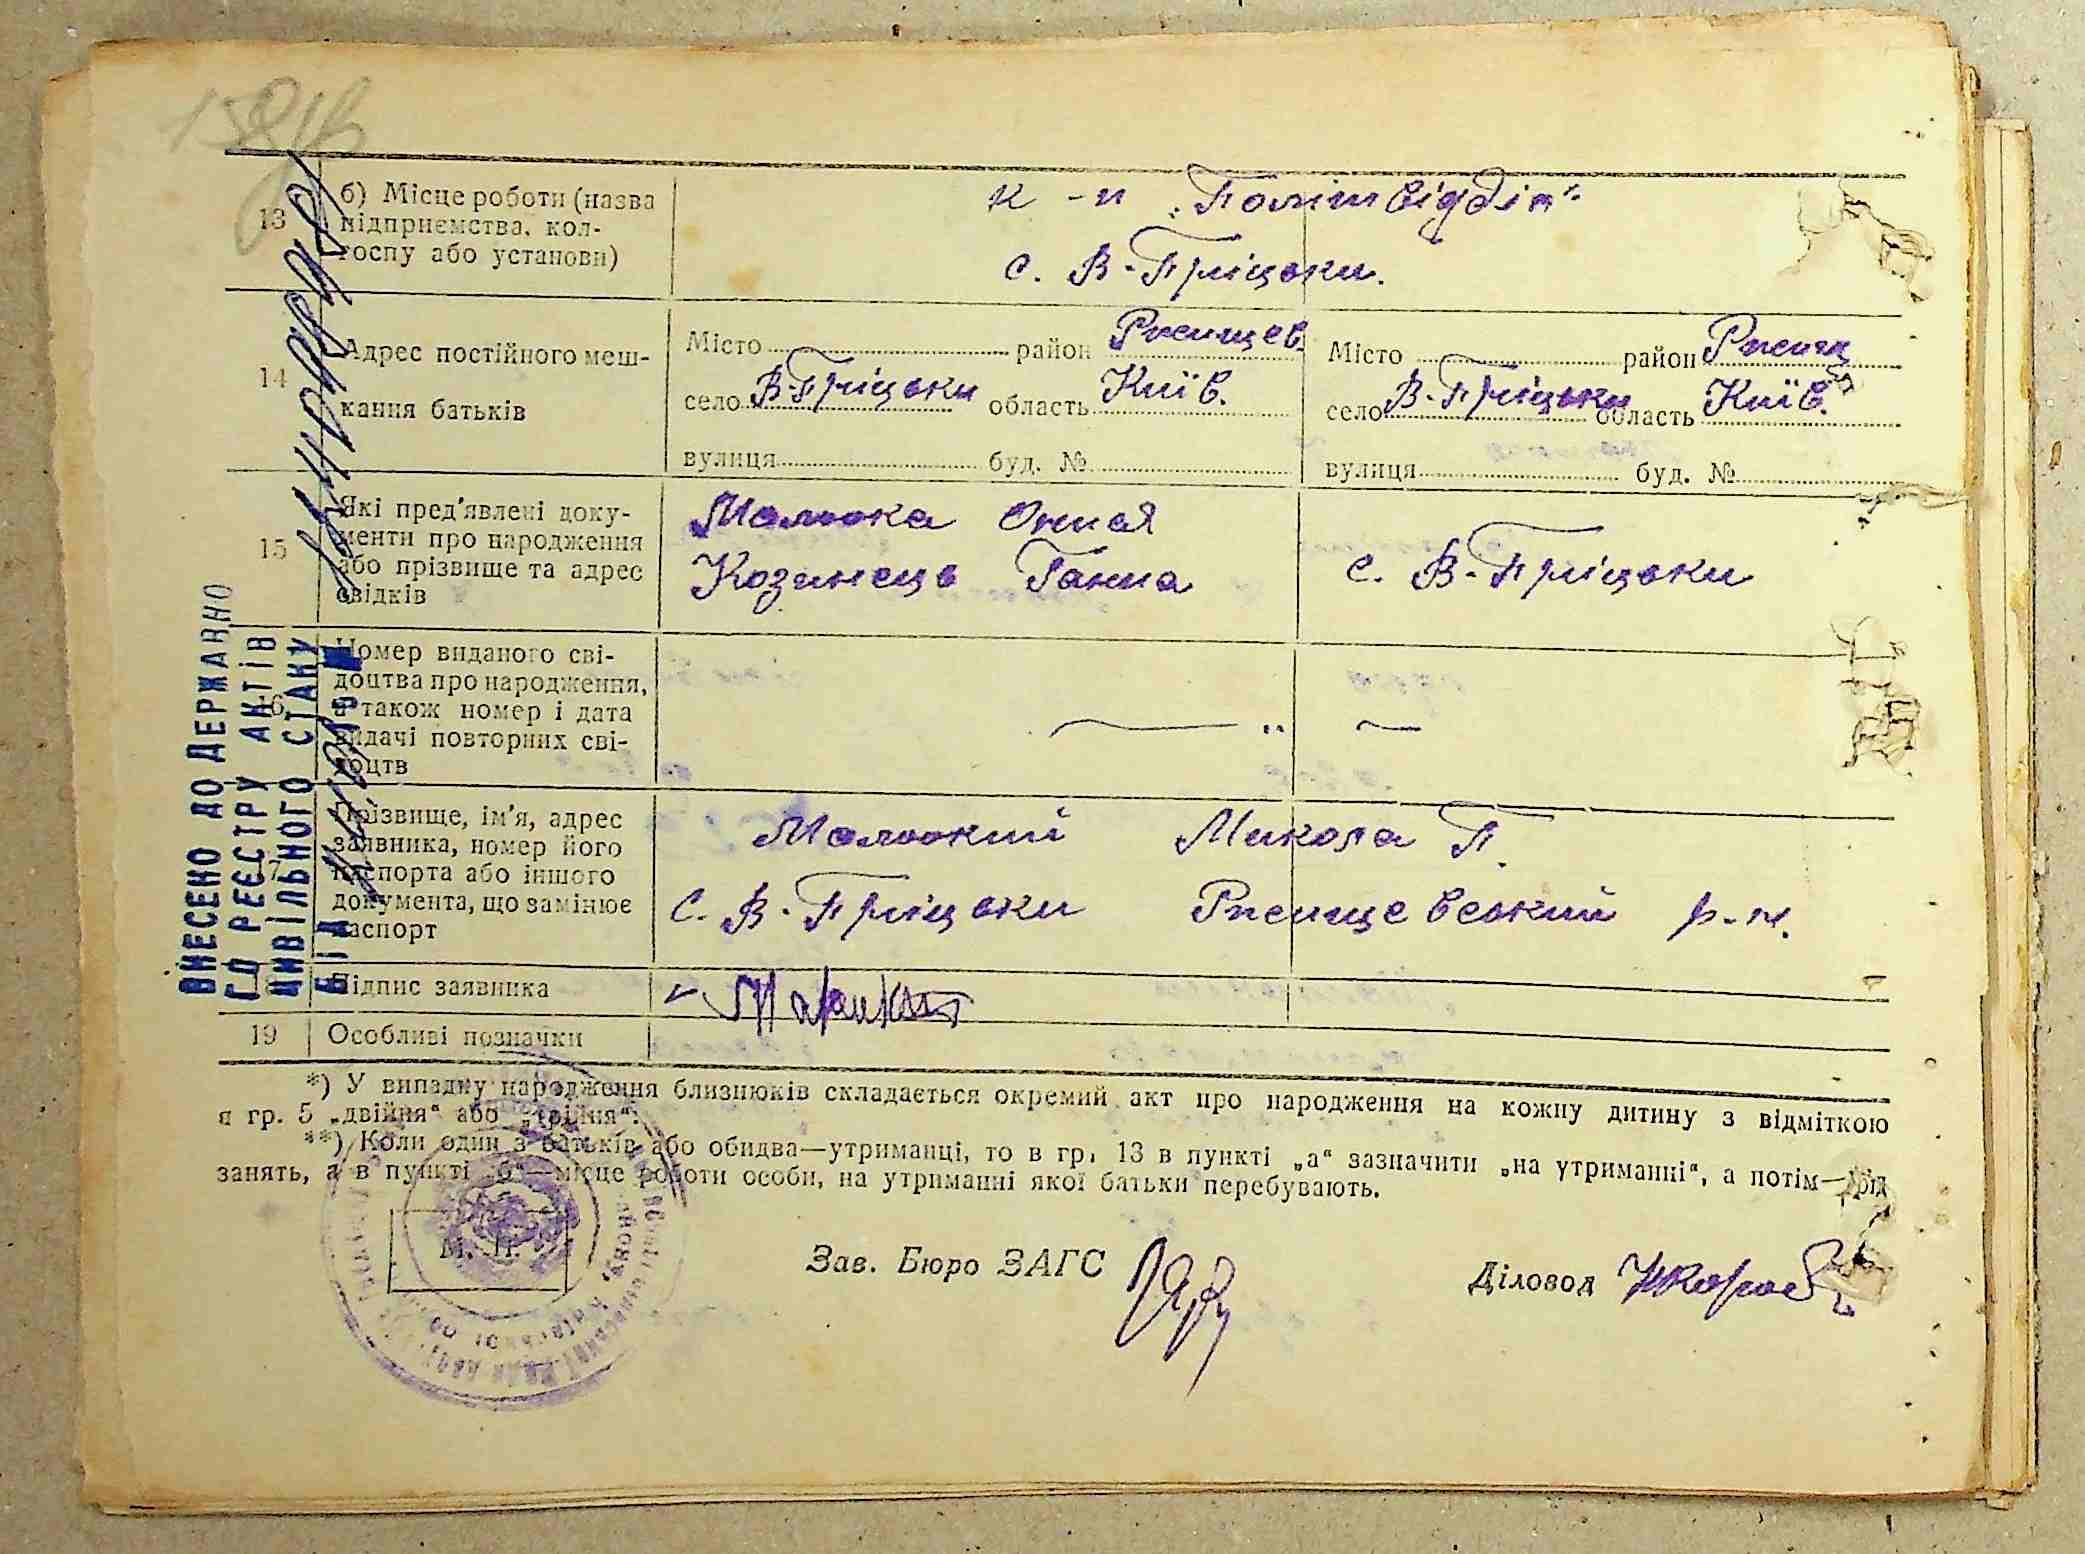 13
б) Місце роботи (назва
підприємства, кол-
госпу або установи)
к-п „Політвідділ“
с. В-Пріцьки.
14
Адрес постійного меш-
кання батьків
Місто район Ржищев.
село В-Пріцьки область Київ.
вулиця буд. №
Місто район Ржищ
село В-Пріцьки область Київ.
вулиця буд. №
15
Які пред'явлені доку-
менти про народження
або прізвище та адрес
свідків
Козинець Ганна
с. В-Пріцьки
16
Номер виданого сві-
доцтва про народження,
а також номер і дата
видачі повторних сві-
доцтв
17
Прізвище, ім'я, адрес
заявника, номер його
паспорта або іншого
документа, що замінює
паспорт
Микола П.
с. В-Пріцьки Ржищевський р-н.
18
Підпис заявника
19
Особливі позначки
*) У випадку народження близнюків складається окремий акт про народження на кожну дитину з відміткою
в гр. 5 „двійня“ або „трійня“.
**) Коли один з батьків або обидва—утриманці, то в гр. 13 в пункті „а“ зазначити „на утриманні“, а потім—рід
занять, а в пункті „б“—місце роботи особи, на утриманні якої батьки перебувають.
М. П.
Зав. Бюро ЗАГС
Діловод
ВНЕСЕНО ДО ДЕРЖАВНО
ГО РЕЄСТРУ АКТІВ
ЦИВІЛЬНОГО СТАНУ